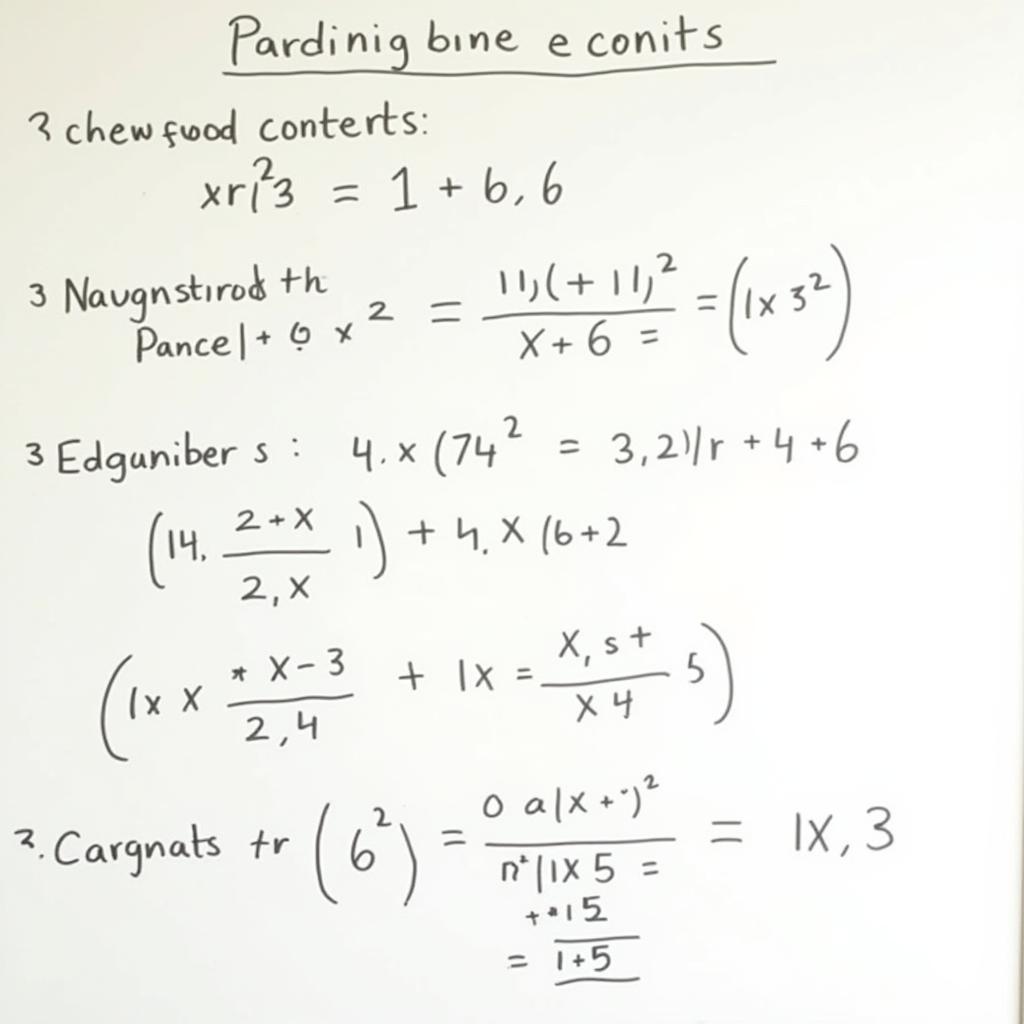 Pardinig bine e conits
3 chew fuod conterts:
xr|²3 = 1 + 6,6
3 Naugnstirod th
Pancel+ 6 x ² = 11,(+ 11,² / X + 6 = = (1x 3²)
3 Edguniber s : 4. x (74² = 3,2)/r + 4 + 6
(14. 2+X / 2,X 1) + 4. X (6+2
(1x X * X-3 / 2,4 + 1x = X, s + / X 4 5)
2. Cargnats tr (6²) = 0 a(x + ·)² / n²|1X 5 = = 1X,3
+ · 1 5
= 1+5